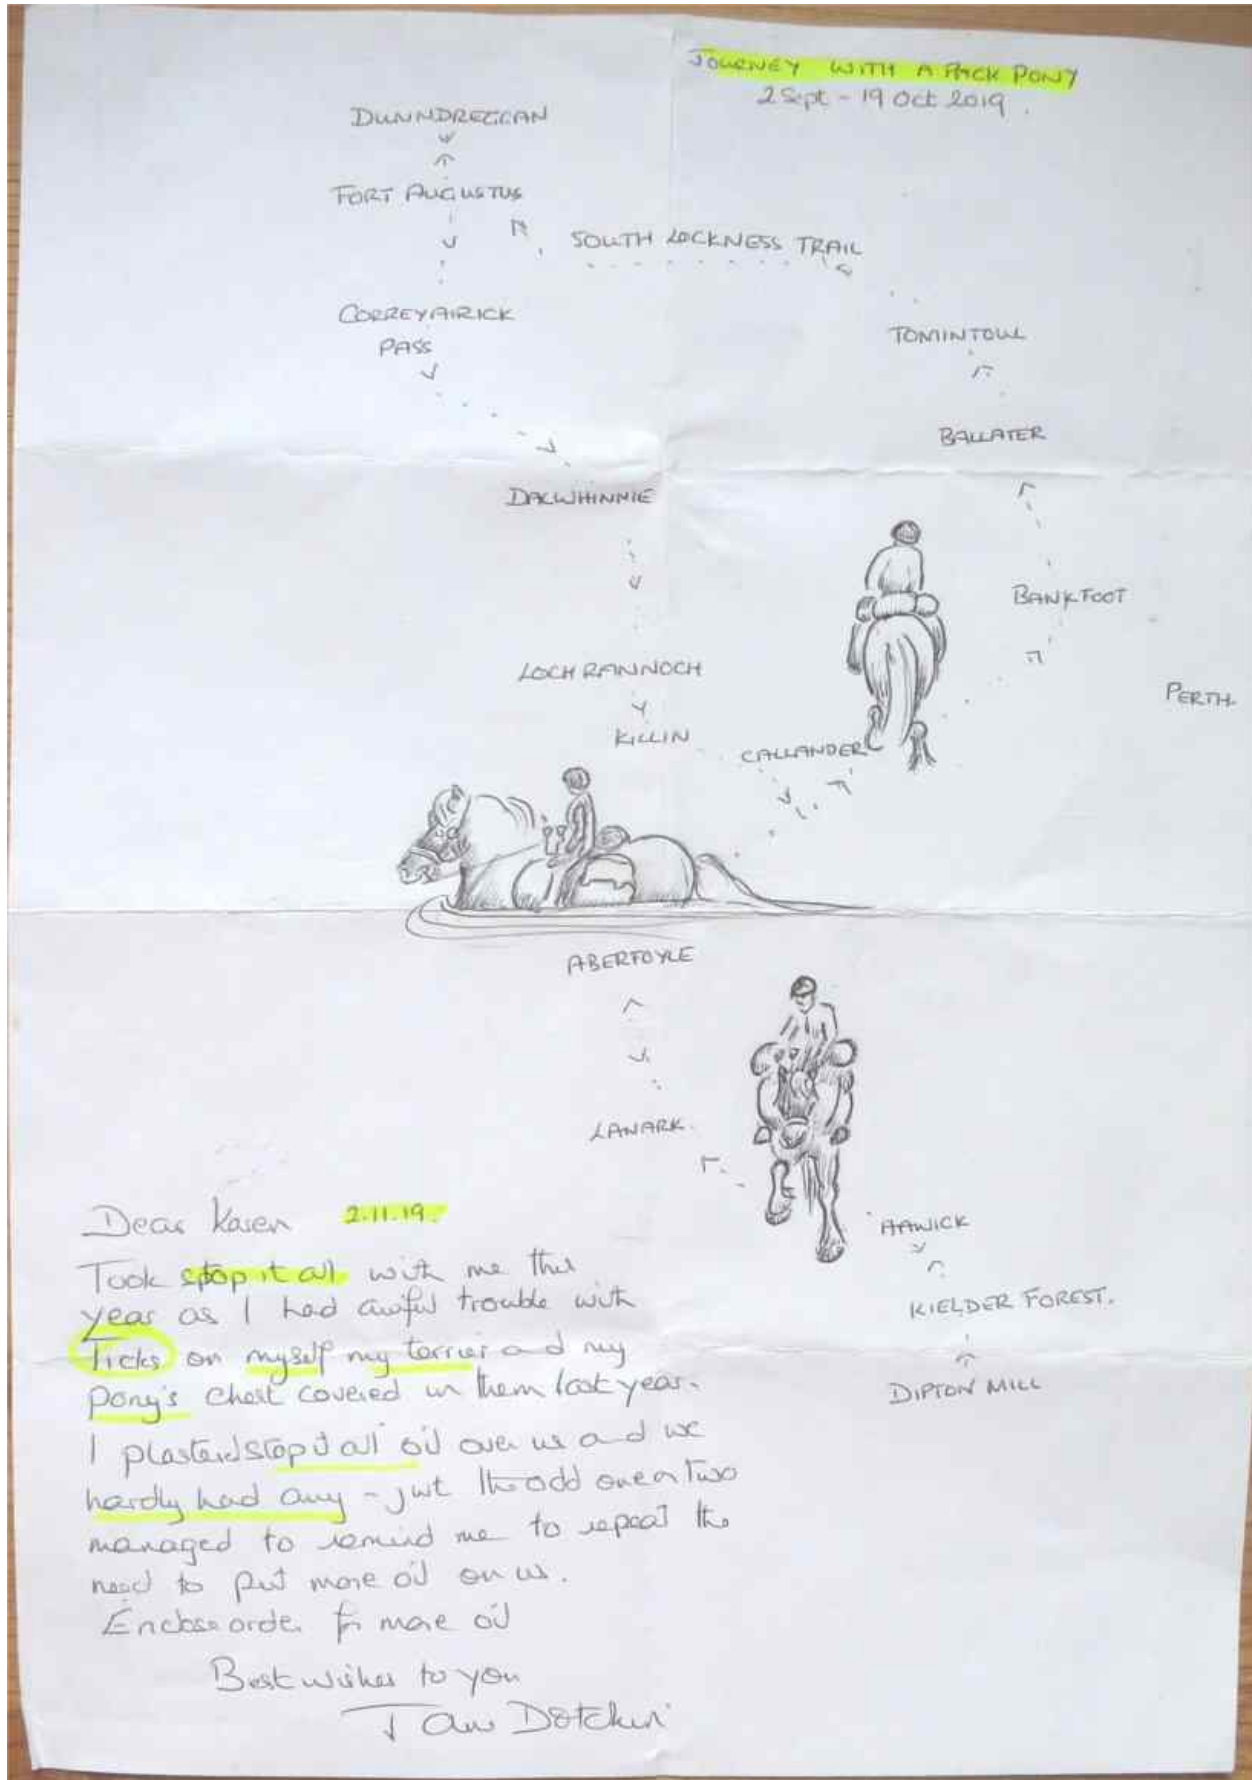 JOURNEY WITH A PACK PONY
2 Sept - 19 Oct 2019.
DUNNDREGGAN
FORT AUGUSTUS
SOUTH LOCKNESS TRAIL
CORREYAIRICK
PASS
TOMINTOUL
BALLATER
DALWHINNIE
BANKFOOT
LOCH RANNOCH
PERTH
KILLIN
CALLANDER
ABERFOYLE
LANARK.
HAWICK
KIELDER FOREST.
DIPTON MILL
Dear Karen 2.11.19.
Took stop it all with me this
year as I had awful trouble with
Ticks on myself my terrier and my
pony's chest covered in them last year.
I plasterd stop it all oil over us and we
hardly had any - just the odd one or two
managed to remind me to repeat the
need to put more oil on us.
Enclose order for more oil
Best wishes to you
Jane Dotchin